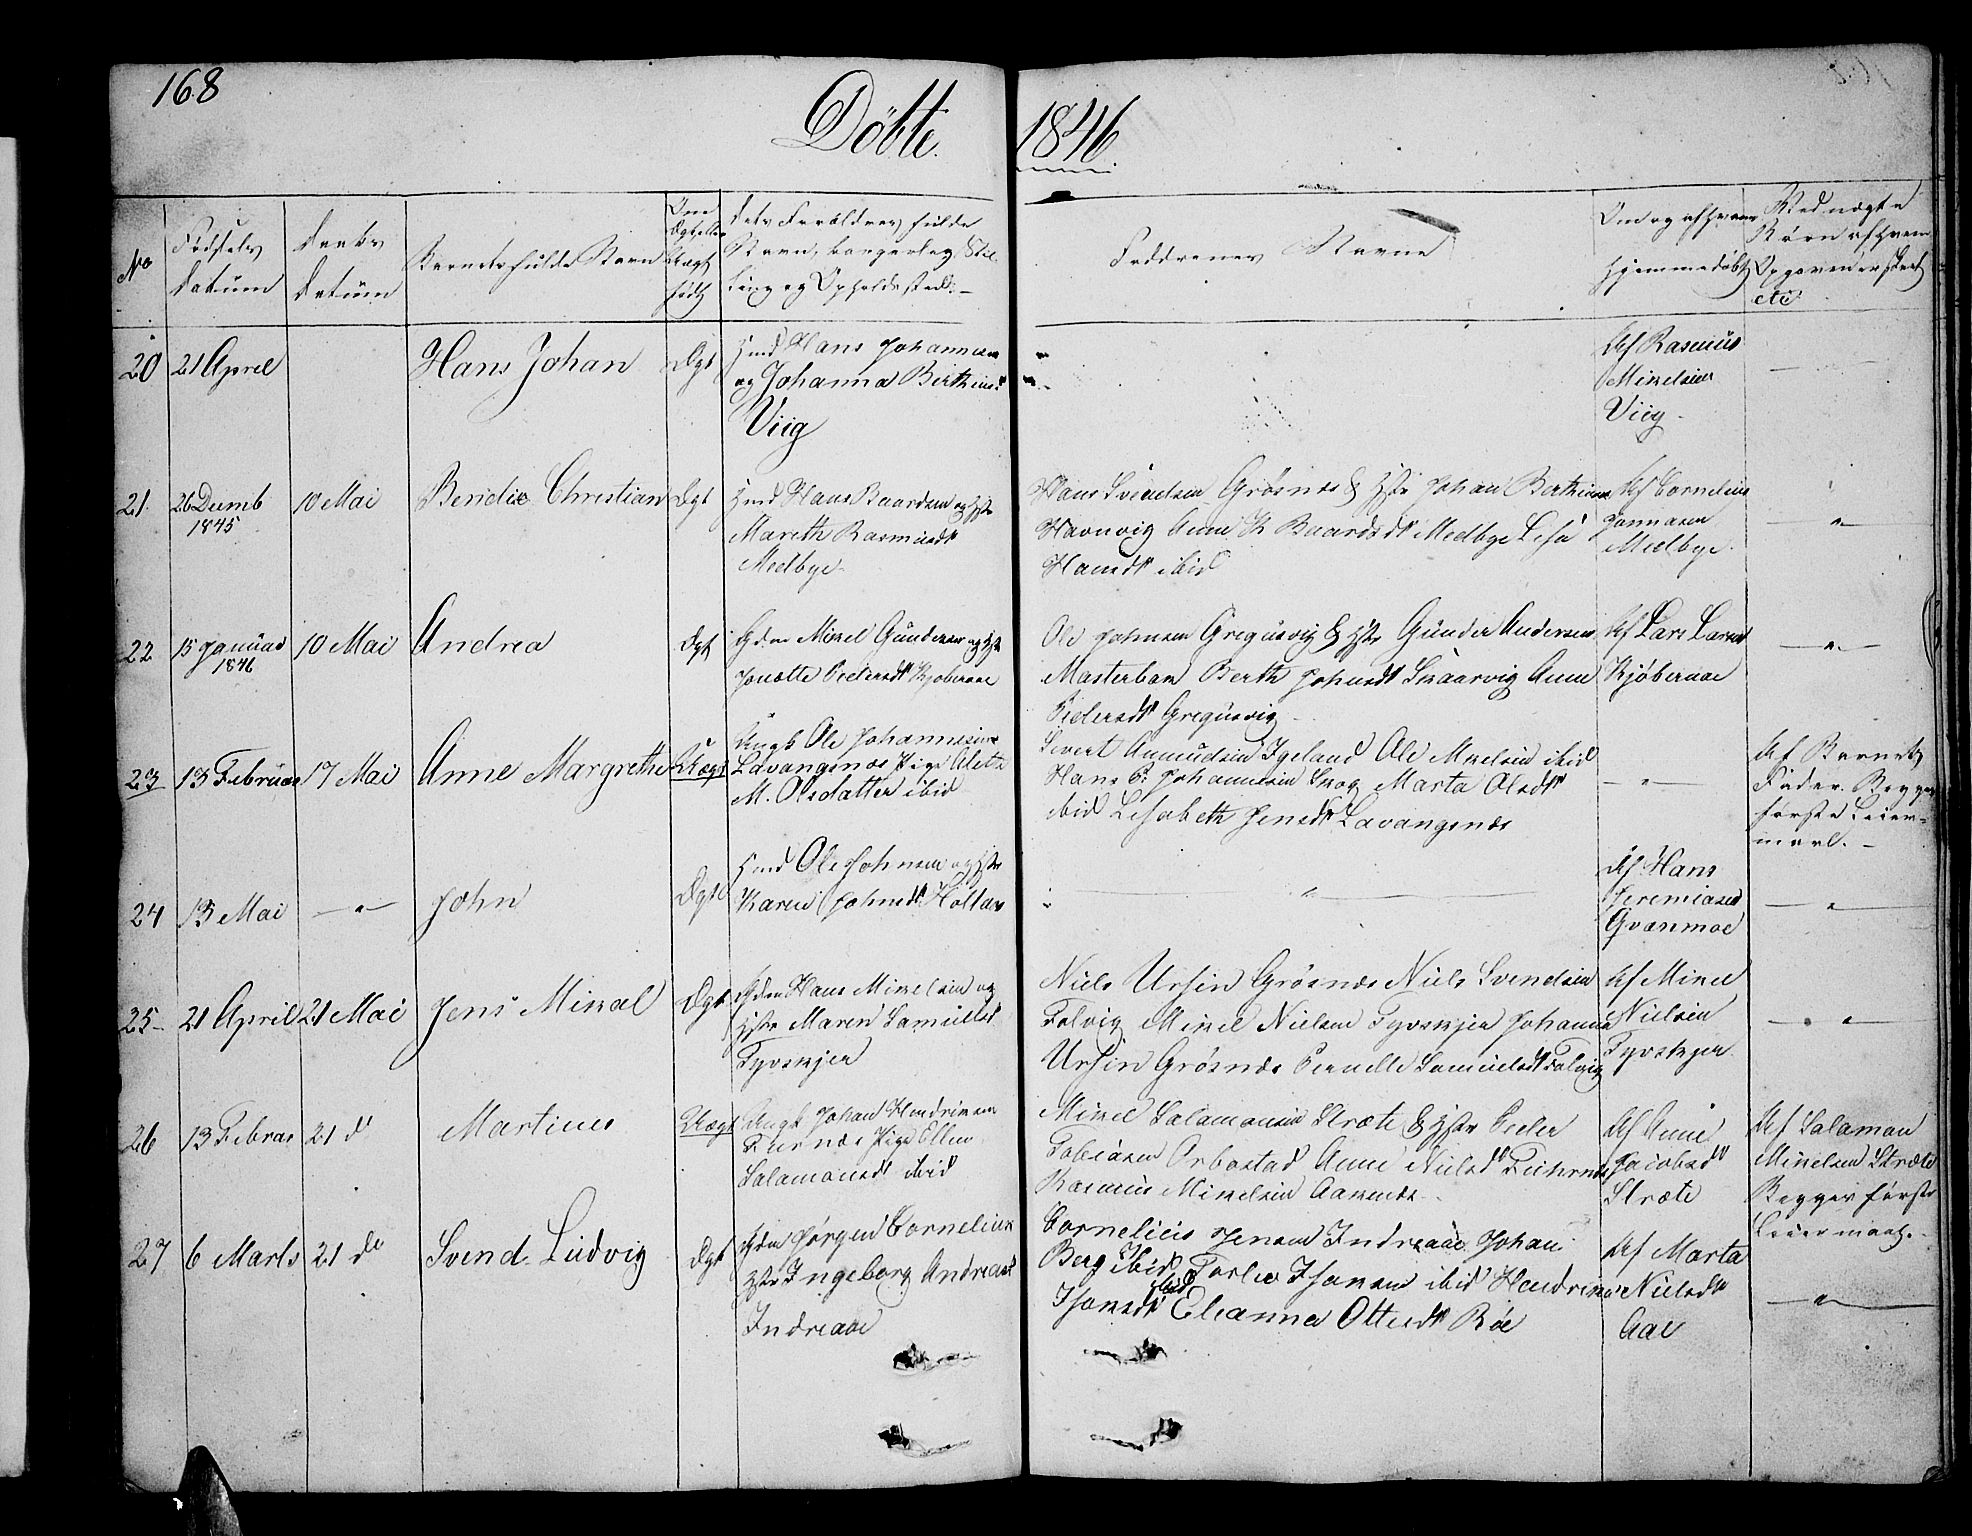 168
Döbte.
1846.
No
Fødsels
datum
Daabs
datum
Barnets fulde Navn
Om
Ægt eller
Uægt
født
dets Foræældres fulde
Navn, borgerlig Stil
ling og Opholdssted.
Faddrenes Navne
Om og af hvem
hjemmedøbt
Børn af hvem
Opgaven er skeet
etc
20
21 April
Hans Johan
Ægt
Hmd Hans Johannesen
og Johanna Berthius
Viig
Af Rasmus
Mikelsen
Viig
21.
26 Decmb
1845
10 Mai
Bendix Christian
Ægt
Hmd Hans Baardsen og Hstr
Mareth Rasmusdt
Medbye
Hans Svendsen Grøsnæs & Hstr Johan Berthius
Havnvig Anne K Baardsdt Medbye Lisa
Hansdt ibid
Af Cornelius
Jonnasen
Medbye.
22
15 Januar
1846
10 Mai
Andrea
Ægt
Gdm Mikel Gundersen og Hstr
Jonette Pedersdt Kjøberaae
Ole Johnsen Gregusvig & Hstr Gunder Andersen
Masterbak Berth Johnsdt Skaarvig Anne
Pedersdt Gregusvig
Af Lars Larsen
Kjøberaae
23
13 Februar
17 Mai
Anne Margrethe
Uægt
Ungk Ole Johannesen
Lavangsnæs Pige Aleth
M. Olsdatter ibid
Sivert Amundsen Igeland Ole Mikelsen ibid
Hans P. Johannesen Skog Marta Olsdt
ibid Lisabeth Jensdt Lavangsnæs
Af Barnets
Fader. Begges
første Leier-
maal.
24
13 Mai
John
Ægte
Hmd Ole Johnsen og Hstr
Karen Johnsdt Holtan
Af Hans
Jeremiasen
Qvanmoe
25
21 April
21 Mai
Jens Mikal
Ægt
Gdm Hans Mikelsen og
Hstr Maren Samuelsdt
Tyvskjer
Niels Ursin Grøsnæs Niels Svendsen
Folvig Mikel Nielsen Tyvskjer Johanna
Ursin Grøsnæs Pernelle Samuelsdt Folvig
Af Mikel
Nielsen
Tyvskjer.
26
13 Febrar
21 do
Martinus
Uægt
Ungk Johan Hendriksen
Pige Ellen
Salamonsdt ibid
Mikel Salamonsen Stræte & Hstr Peder
Tobiasen Orbostad Anne Nielsdt
Rasmus Mikelsen Aaknæs
Af Anne
Jacobsdt
Stræte
Af Salamon
Mikelsen Stræte
Begges første
Leiermaal.
27
6 Marts
21 do
Svend Ludvig
Ægt
Gdm Jørgen Cornelius
Hstr Ingeborg Andreasdt
Indreaae
Cornelius Jensen Indreaae Johan
Berg ibid Torlev Isaksen ibid Hendrikka
Isaksdt ibid Elianna Ottesdt Røe
Af Marta
Nielsdt
Aae